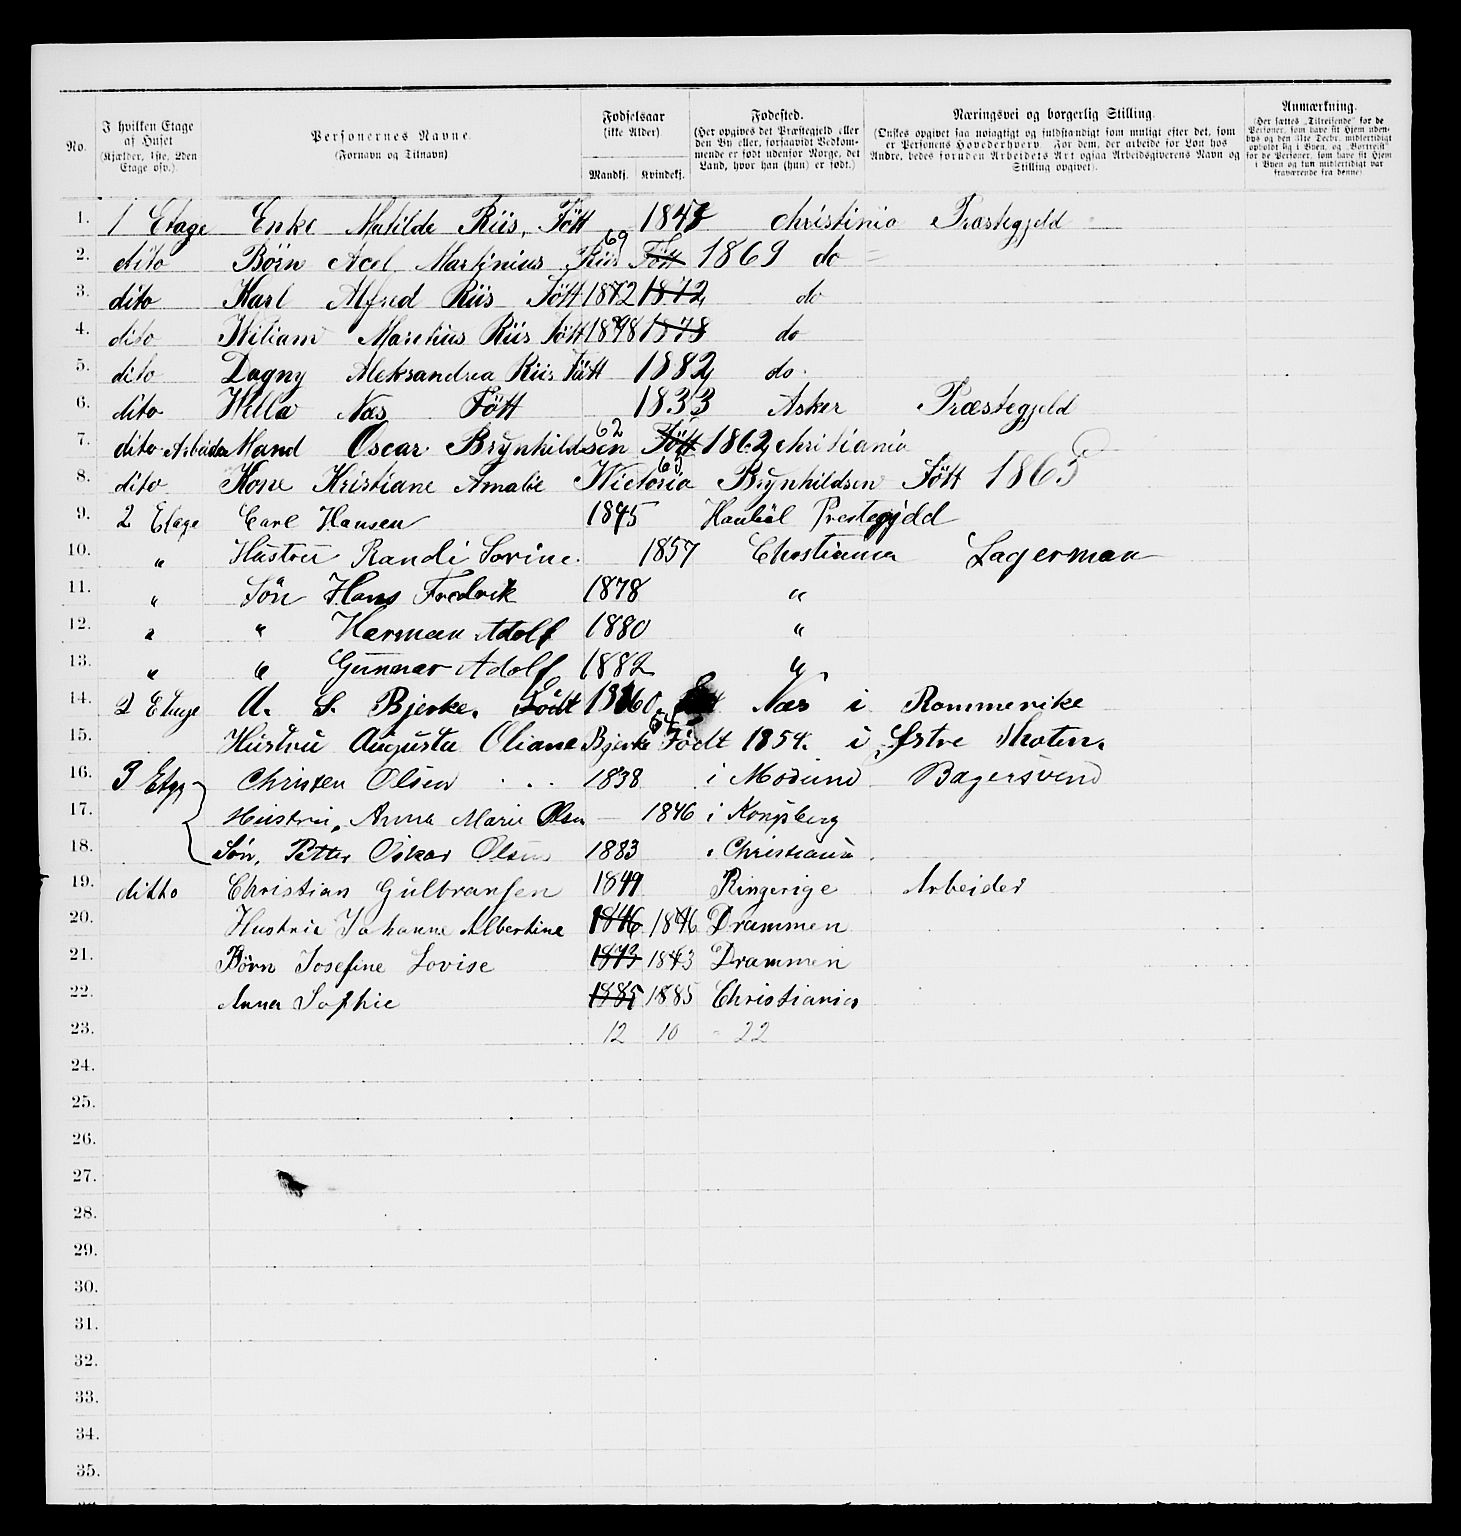 No. | I hvilken Etage af Huset (Kjælder, 1ste, 2den Etage osv.). | Personernes Navne. (Fornavn og Tilnavn) | Fødselsaar (ikke Alder) Mandkj. Kvindekj. | Fødested. (Her opgives det Præstegjeld eller den By eller, forsaavidt Vedkommende er født udenfor Norge, det Land, hvor han (hun) er født.) | Næringsvei og borgerlig Stilling. (Ønskes opgivet saa nøiagtigt og fuldstændigt som muligt efter det, som er Personens Hovederhverv. For dem, der arbeide for Løn hos Andre, bedes foruden Arbeidets Art ogsaa Arbeidsgiverens Navn og Stilling opgivet). | Anmærkning. (Her sættes „Tilreisende“ for de Personer, som have sit Hjem udenbys og den 31te Decbr. midlertidigt opholdt sig i Byen, og „Bortreist“ for de Personer, som have sit Hjem i Byen og kun midlertidigt var fraværende fra denne).
1. 1 Etage Enke Matilde Riis, Føtt 1847 christinia Præstegjeld
2. dito Børn Acel Martinius Riis 69 Føtt 1869 do
3. dito Karl Alfred Riis Føtt 1872 1872 do
4. dito Wiliam Marchus Riis føtt 1878 1878 do
5. dito Dagny Aleksandrea Riis Føtt 1882 do.
6. dito Willa Næs Føtt 1833 Asker Præstegjeld
7. dito Arbeider Mand Oscar Brynhildsen 62 Føtt 1862 christiania
8. dito Kone Kristiane Amalie Wictoria 65 Brynhildsen Føtt 1865
9. 2 Etage Carl Hansen 1845 Prestegjeld
10. " Hustru Randi Sorine. 1857 Christiania Lagerman
11. " Sön Hans Fredrik 1878 "
12. " " Herman Adolf 1880 "
13. " " Gunnar Adolf 1882 "
14. 2 Etage A. S. Bjerke. Født 1860 Næs i Rommerike
15. Hustru Augusta Oliane Bjerke 54 Født 1854. i Østre Thoten.
16. 3 Etge Christen Olsen 1838 i Modum Bagersvend
17. Hustru, Anna Marie Olsen 1846 i Kongsberg
18. Søn, Petter Oskar Olsen 1883 i Christiania
19. ditto Christian Gulbransen 1849 Ringerige Arbeider
20. Hustrue Johanne Albertine 1846 1846 Drammen
21. Børn Josefine Lovise 1873 1873 Drammen
22. Anna Sophie 1885 1885 Christiania
23. 12 10 - 22
24.
25.
26.
27.
28.
29.
30.
31.
32.
33.
34.
35.